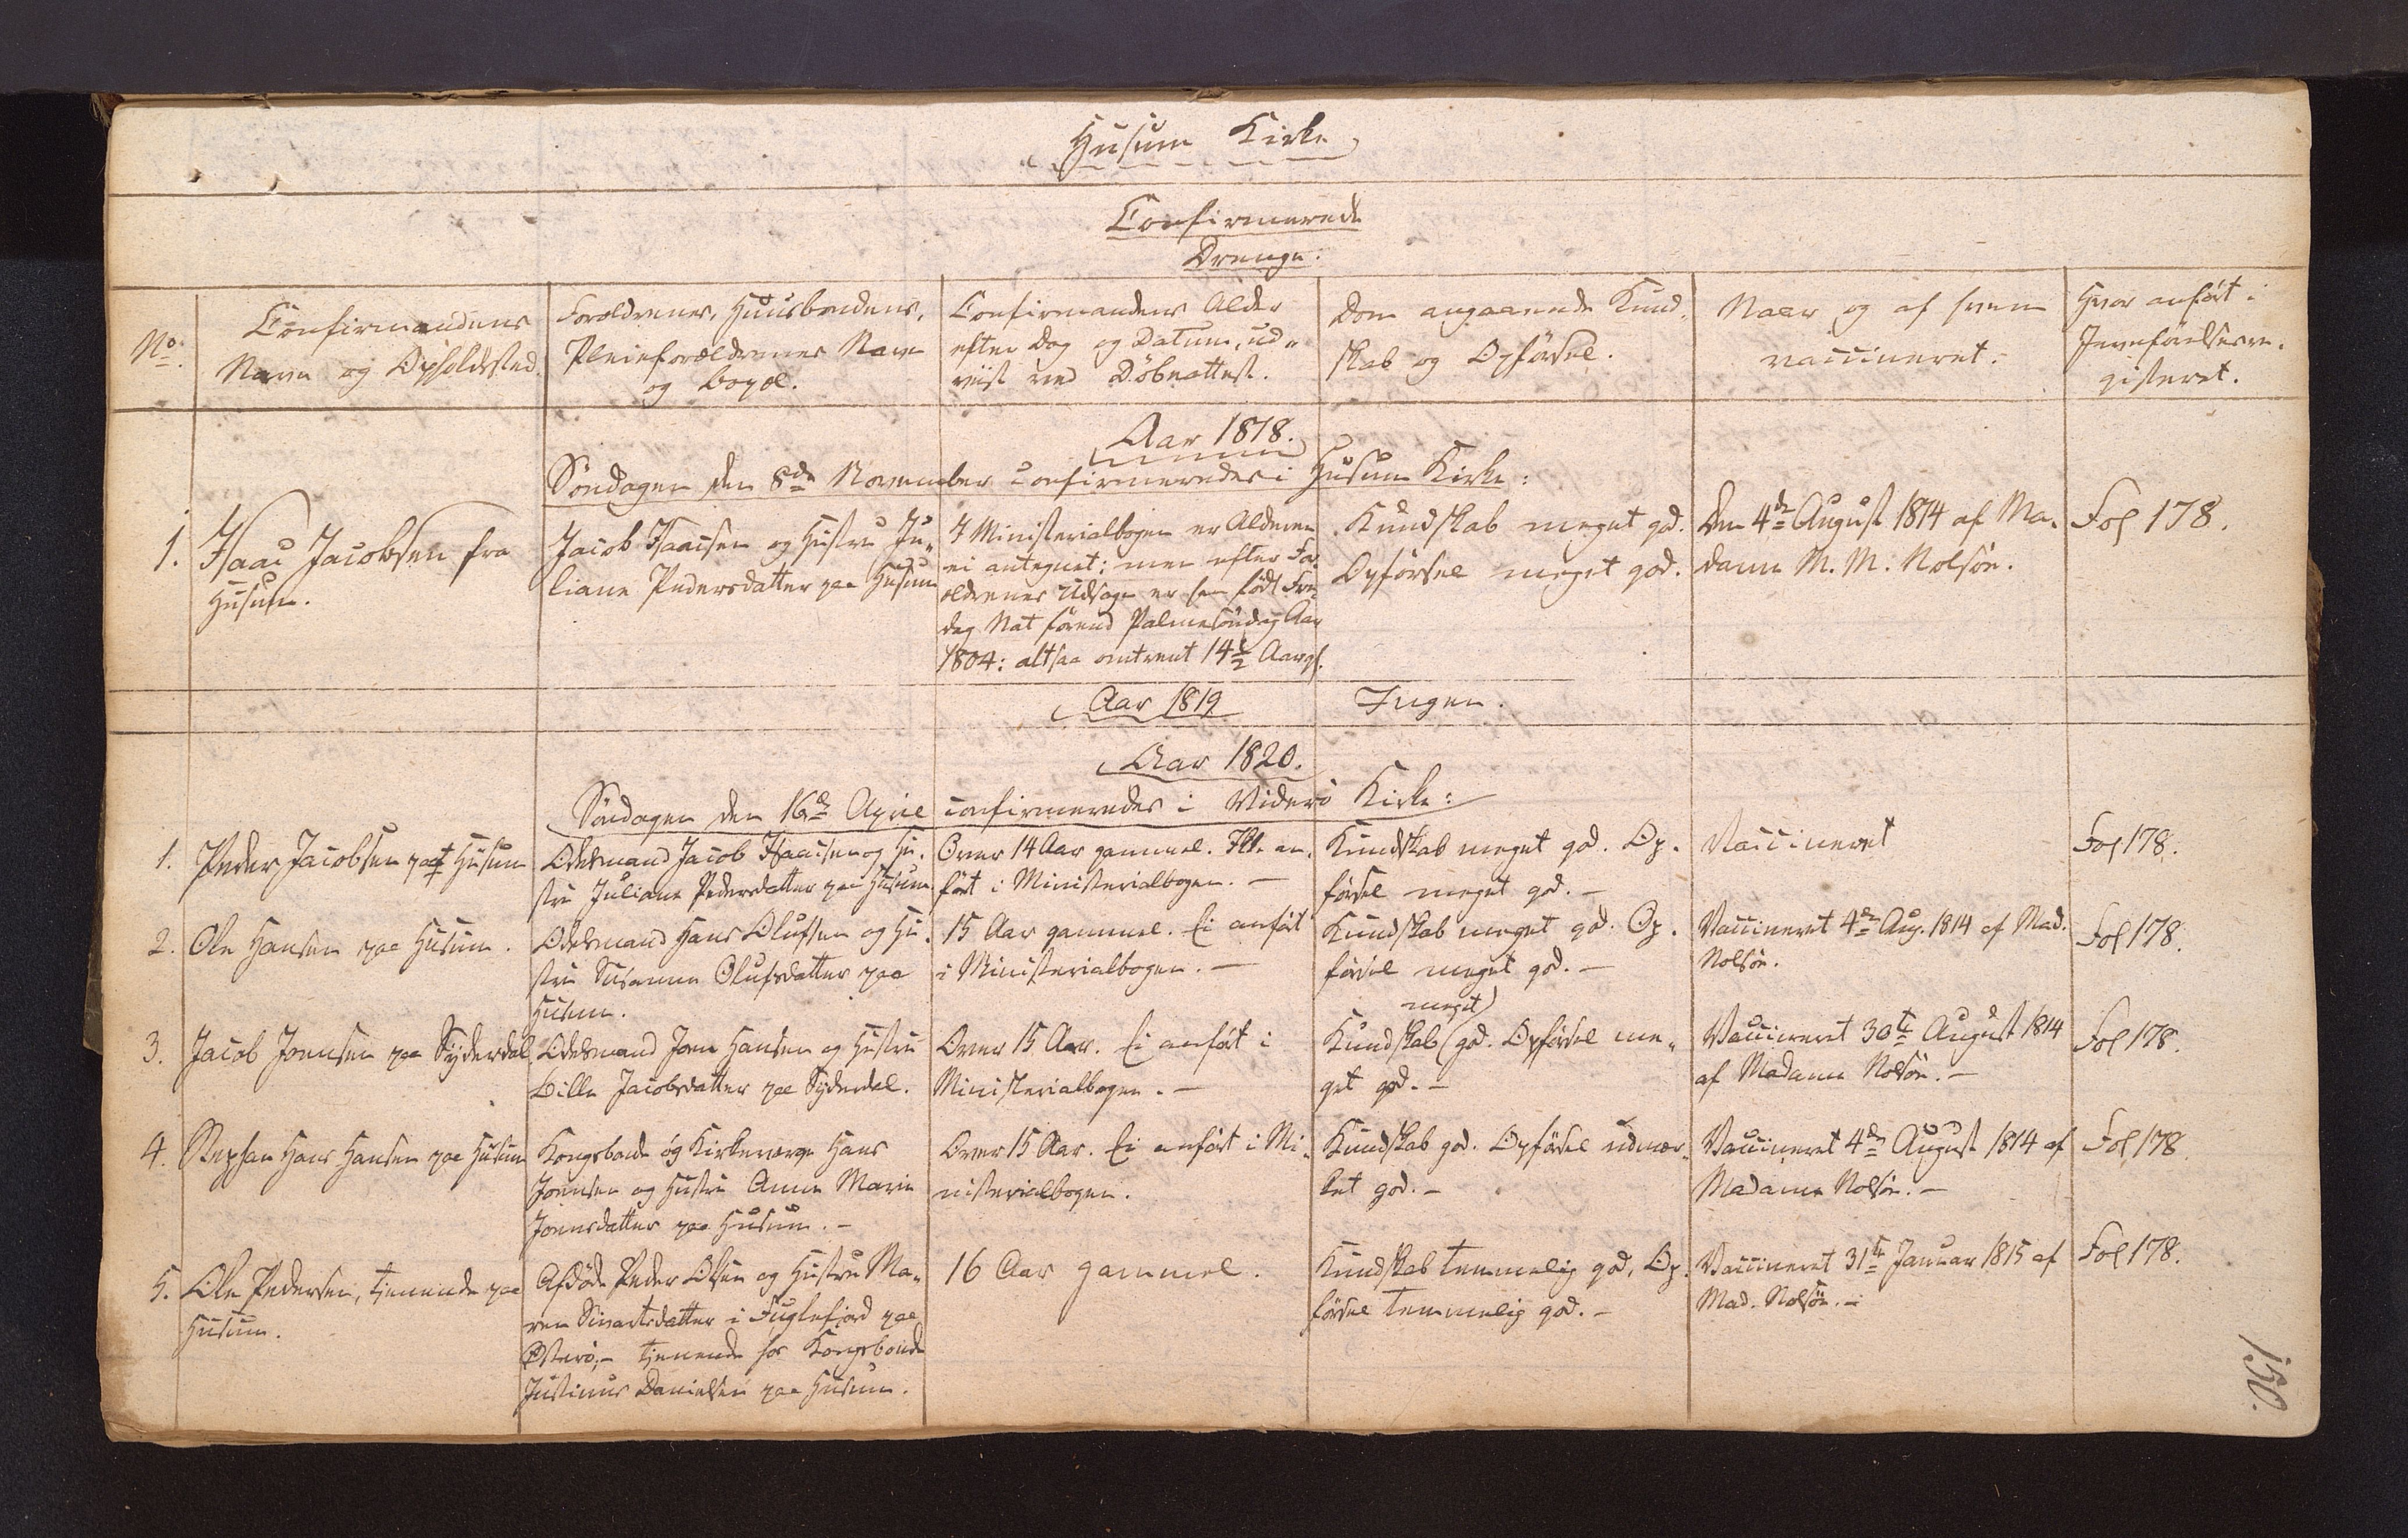 Husum Kirke
Confirmerede
Drenge.
No.
Confirmandens
Navn og Opholdsted.
Forældrenes, Huusbondens,
Pleieforældrenes Navn
og Bopæl.
Confirmandens Alder
efter Dag og Datum, ud„
viist ved Döbeattest.
Dom angaaende Kund„
skab og Opförsel.
Naar og af hvem
vaccineret.
Hvor anfört i
Jevnförelsesre„
gisteret.
Aar 1818.
Söndagen den 8de November confirmeredes i Husum Kirke:
1.
Isaac Jacobsen fra
Husum.
Jacob Isaacsen og Hustru Ju„
liane Pedersdatter paa Husum
I Ministerialbogen er Alderen
ei antegnet; men efter For„
ældrenes Udsagn er han född Fre„
dag Nat förend Palmesöndag Aar
1804: altsaa omtrent 14½ Aargl.
Kundskab meget god.
Opförsel meget god.
Den 4de August 1814 af Ma„
dame M. M. Nolsöe.
Fol 178.
Aar 1819
Ingen.
Aar 1820.
Söndagen den 16de April confirmeredes i Viderö Kirke:
1.
Peder Jacobsen paa Husum
Odelsmand Jacob Isaacsen og Hu„
stru Juliane Pedersdatter paa Husum
Over 14 Aar gammel. Ikke an„
fört i Ministerialbogen. —
Kundskab meget god. Op„
försel meget god. —
Vaccineret
Fol 178.
2.
Ole Hansen paa Husum.
Odelsmand Hans Olufsen og Hu„
stru Susanne Olufsdatter paa
Husum.
15 Aar gammel. Ei anfört
i Ministerialbogen. —
Kundskab meget god. Op„
försel meget god. —
Vaccineret 4de Aug. 1814 af Mad.
Nolsöe.
Fol 178.
3.
Jacob Joensen paa Syderdal
Odelsmand Joen Hansen og Hustru
Bille Jacobsdatter paa Syderdal.
Over 15 Aar. Ei anfört i
Ministerialbogen. —
meget
Kundskab god. Opförsel me„
get god. —
Vaccineret 30te August 1814
af Madame Nolsöe. —
Fol 178.
4.
Hans Hansen paa Husum
Kongsbonde og Kirkeværge Hans
Joensen og Hustru Anne Marie
Joensdatter paa Husum. —
Over 15 Aar. Ei anfört i Mi„
nisterialbogen.
Kundskab god. Opförsel udmær„
ket god. —
Vaccineret 4de August 1814 af
Madame Nolsöe. —
Fol 178.
5.
Ole Pedersen, tjenende paa
Husum.
Afdöde Peder Olsen og Hustru Ma„
ren Sivartsdatter i Fuglefiord paa
Österö; — tjenende hos Kongsbonde
Justinus Danielsen paa Husum.
16 Aar gammel.
Kundskab temmelig god, Op„
försel temmelig god. —
Vaccineret 31te Januar 1815 af
Mad. Nolsöe. —
Fol 178.
150.